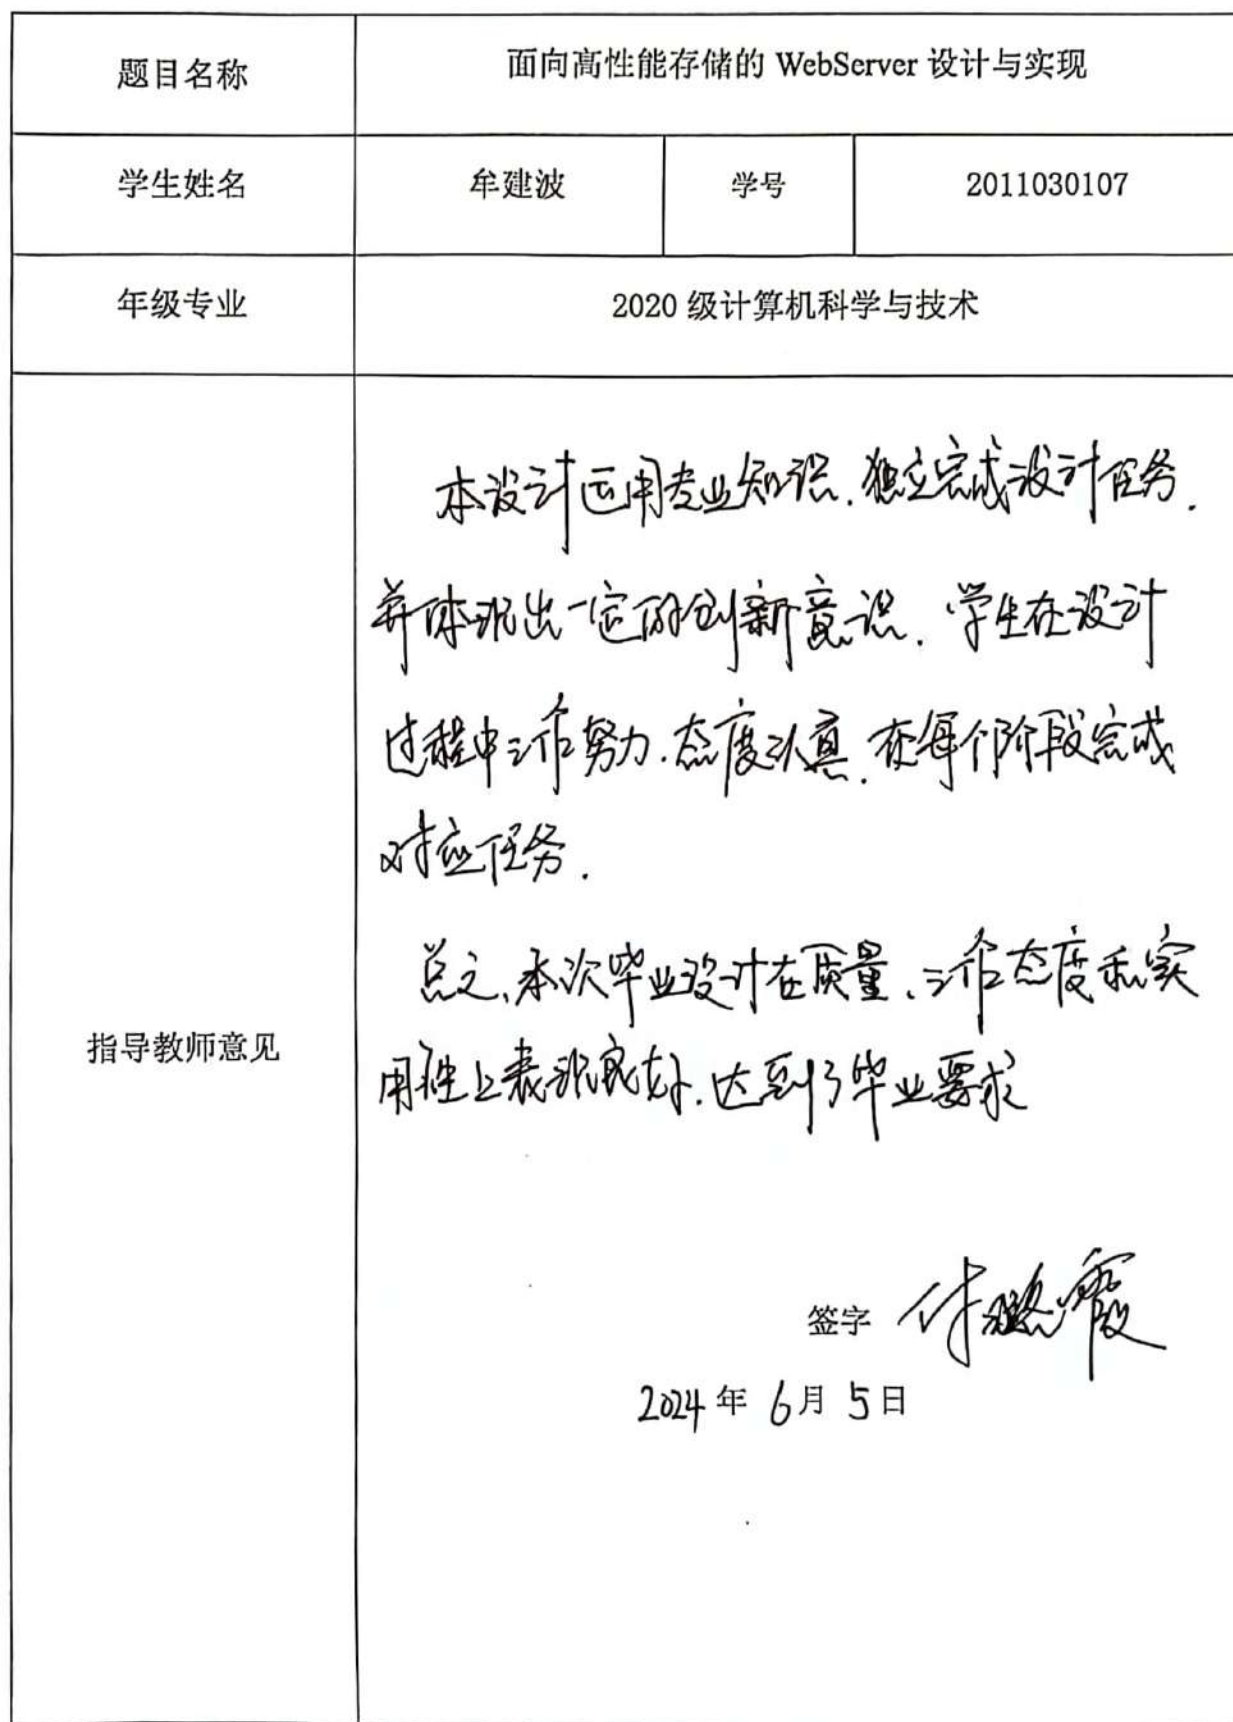 题目名称 面向高性能存储的 WebServer 设计与实现
学生姓名 牟建波 学号 2011030107
年级专业 2020 级计算机科学与技术
指导教师意见
本设计运用专业知识.独立完成设计任务.
并体现出一定的创新意识.学生在设计
过程中工作努力.态度认真.在每个阶段完成
对应任务.
总之,本次毕业设计在质量、工作态度和实
用性上表现良好.达到了毕业要求
签字 付 霞
2024 年 6 月 5 日